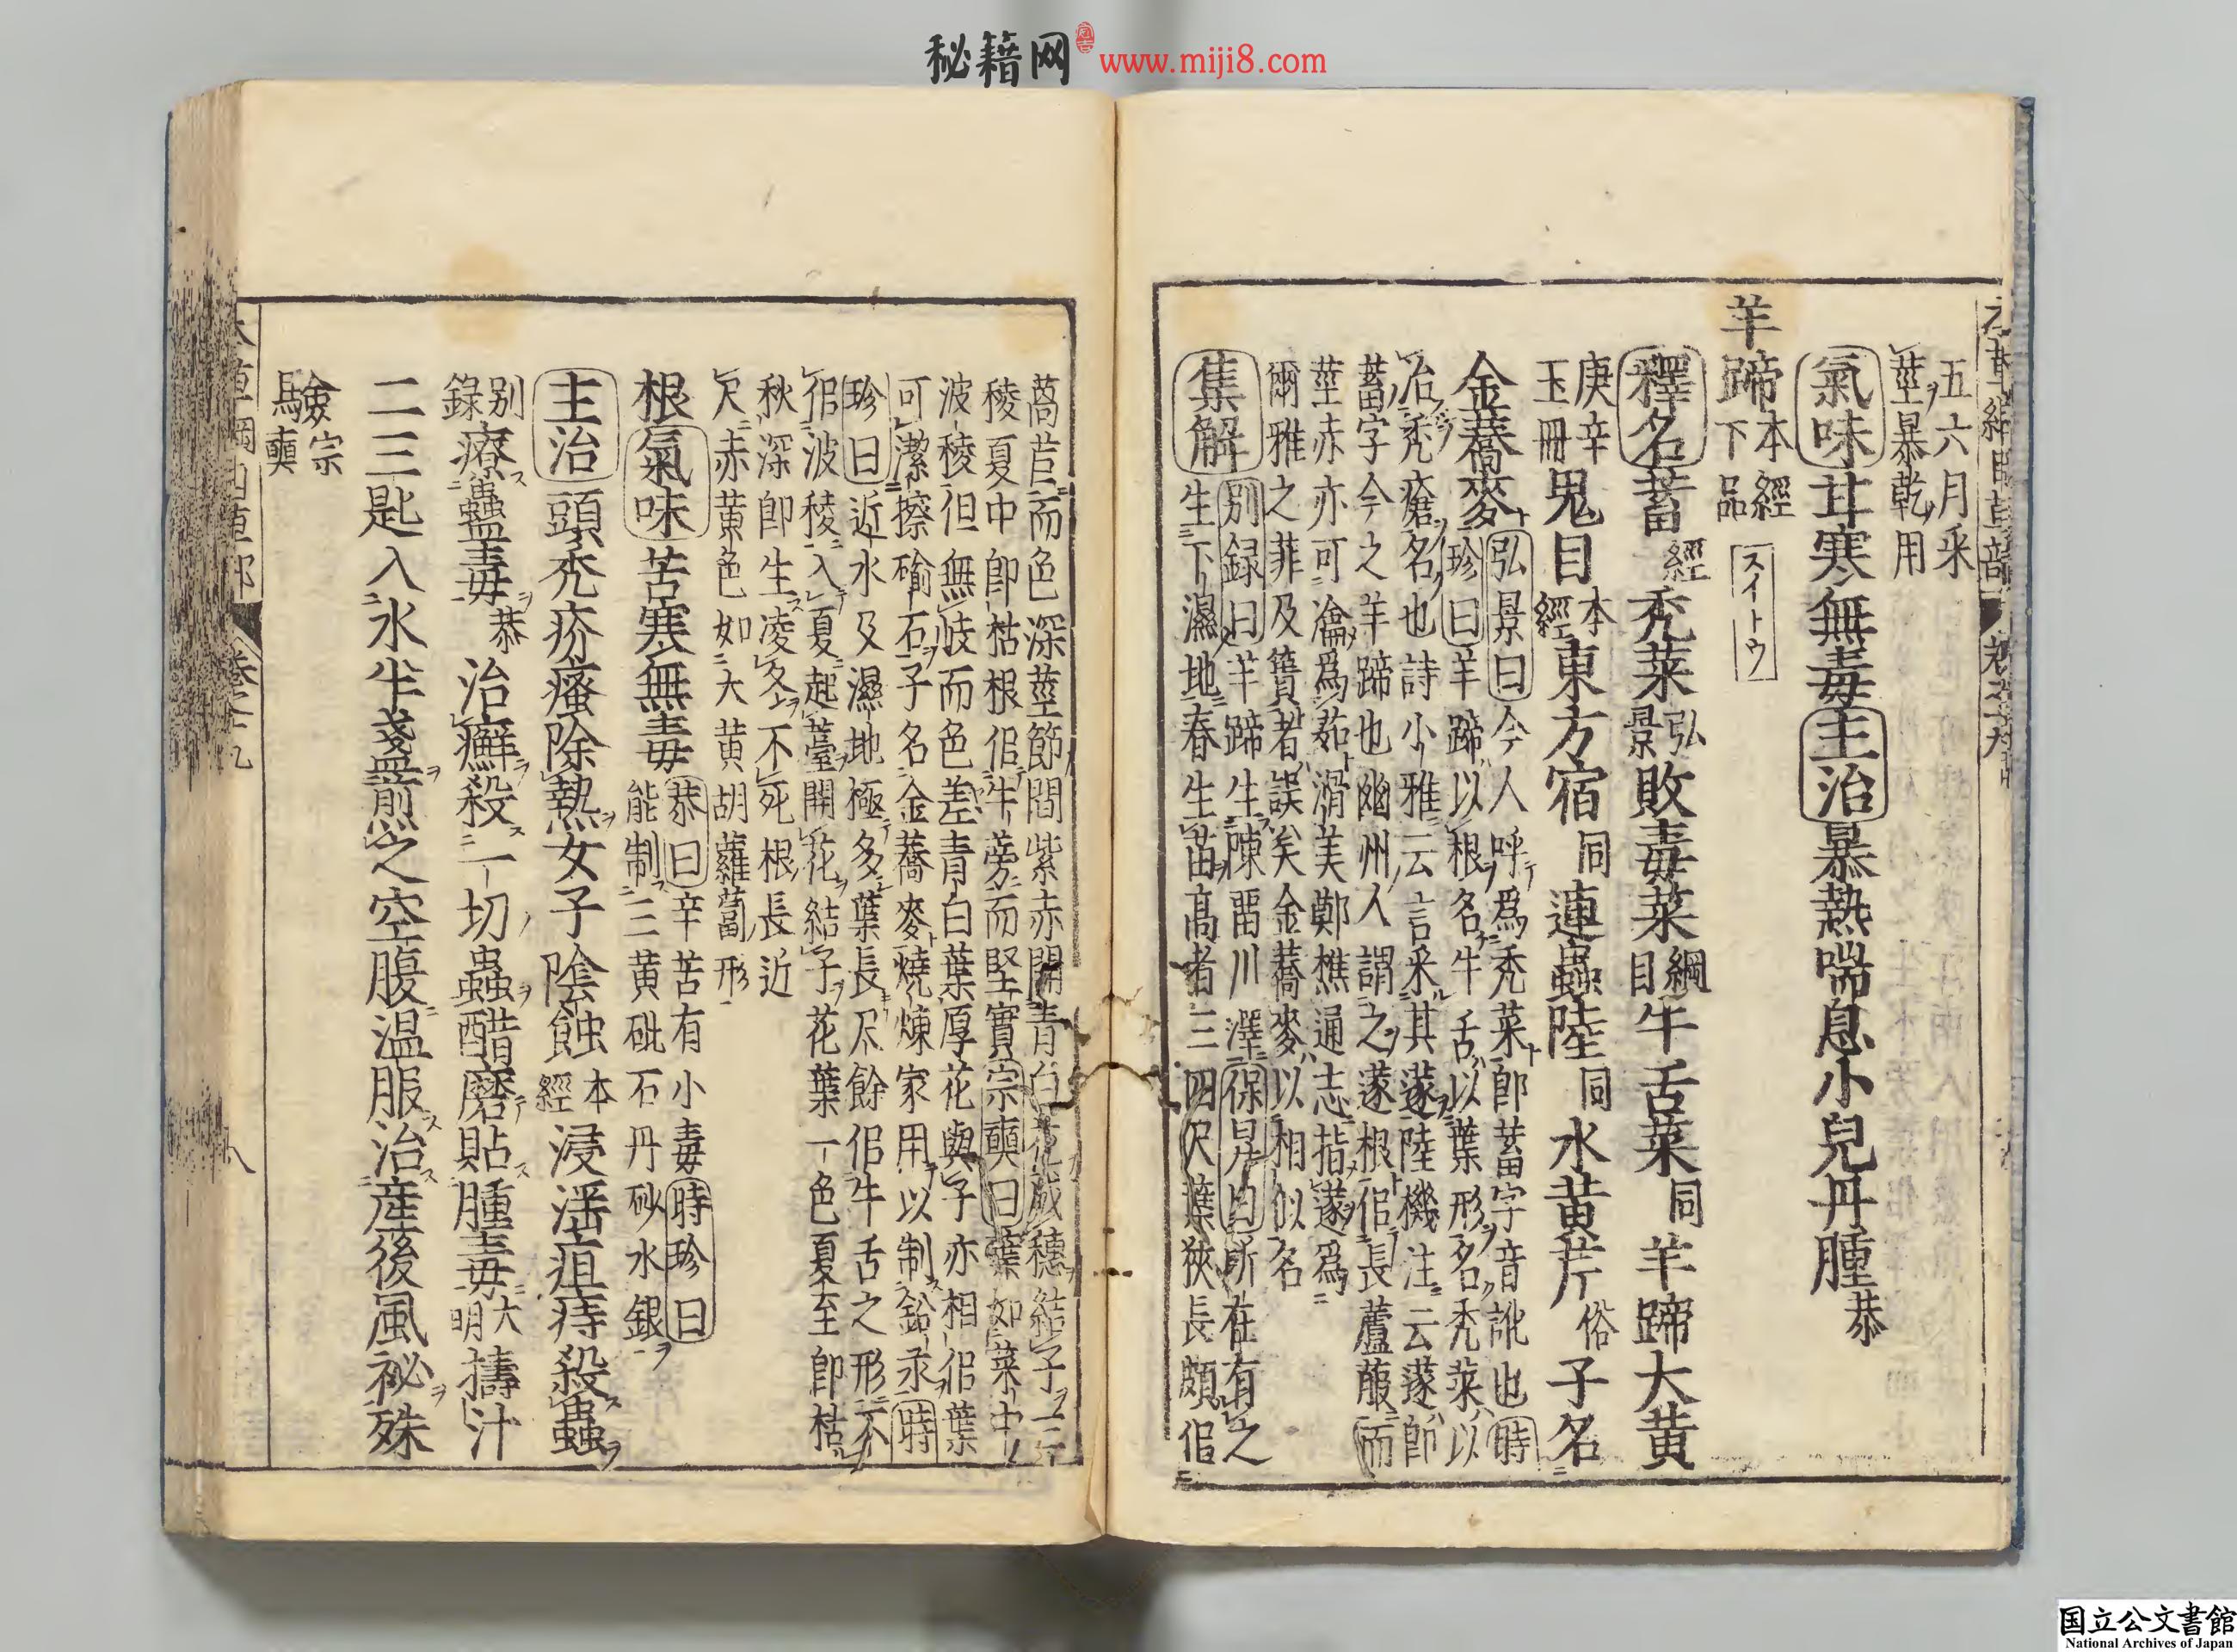 秘籍网 www.miji8.com
五六月采
莖暴乾用
氣味甘寒無毒主治暴熱喘息小兒丹腫恭
羊蹄本經下品 スイトウ
釋名蓄經禿菜弘景敗毒菜綱目牛舌菜同羊蹄大黃
庚辛玉冊鬼目本經東方宿同連蟲陸同水黃芹俗子名
金蕎麥弘景曰今人呼爲禿菜即蓄字音訛也時
珍曰羊蹄以根名牛舌以葉形名禿菜以
治禿瘡名也詩小雅云言采其蓫陸機注云蓫即
蓄字今之羊蹄也幽州人謂之蓫根似長蘆菔而
莖赤亦可瀹爲茹滑美鄭樵通志指蓫爲
爾雅之菲及蕢者誤矣金蕎麥以相似名
集解別録曰羊蹄生陳留川澤保昇曰所在有之
生下濕地春生苗高者三四尺葉狹長頗似
萵苣而色深莖節間紫赤開青白花成穗結子三
稜夏中即枯根似牛蒡而堅實宗奭曰葉如菜中
波稜但無岐而色差青白葉厚花與子亦相似葉
可潔擦鍮石子名金蕎麥燒煉家用以制鉛汞時
珍曰近水及濕地極多葉長尺餘似牛舌之形不
似波稜入夏起薹開花結子花葉一色夏至即枯
秋深即生凌冬不死根長近
尺赤黃色如大黃胡蘿蔔形
根氣味苦寒無毒恭曰辛苦有小毒時珍曰
能制三黃砒石丹砂水銀
主治頭禿疥瘙除熱女子陰蝕本經浸淫疽痔殺蟲
別録療蠱毒恭治癬殺一切蟲醋磨貼腫毒大明擣汁
二三匙入水半盞煎之空腹温服治産後風祕殊
驗宗奭
国立公文書館
National Archives of Japan